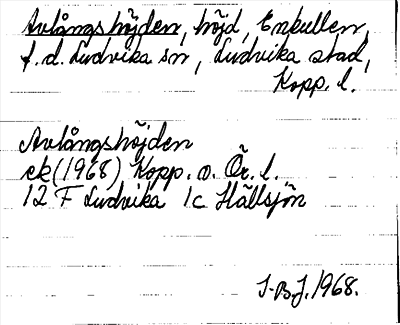 Avlångshöjden, höjd, Enkullen,
f.d. Ludvika sn, Ludvika stad,
Kopp. l.
Avlångshöjden
ek (1968) Kopp. o. Ör. l.
12 F Ludvika 1c Hällsjön
I.B.J. 1968.